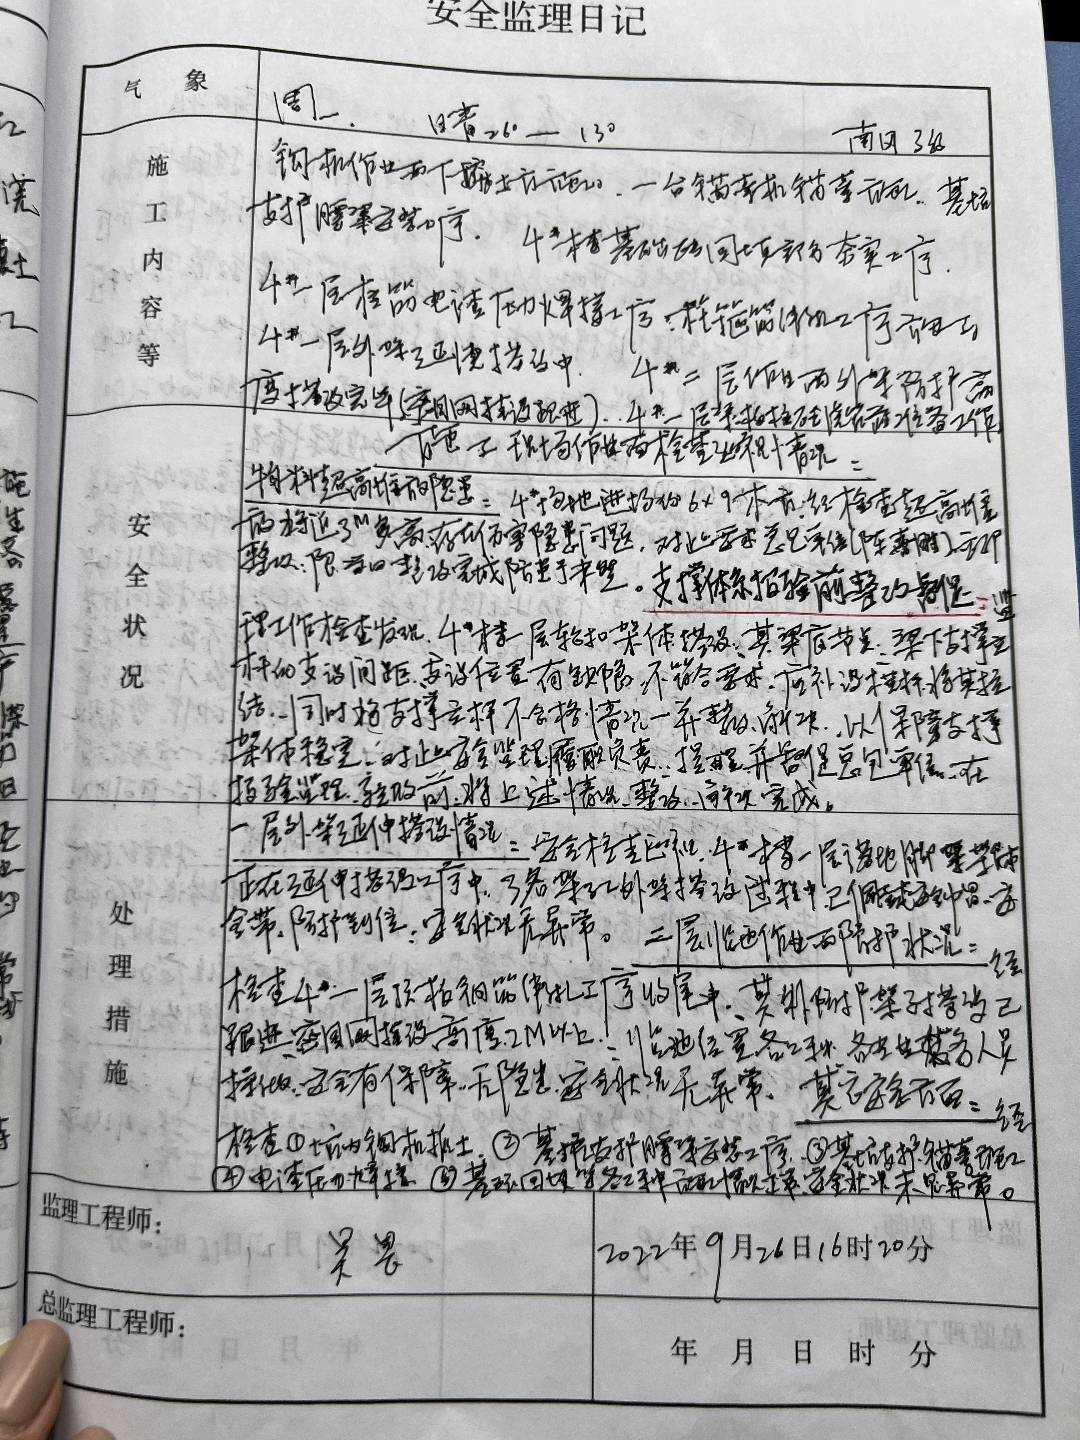 安全监理日记
气象
周一. 晴 26°—13° 南风3级
施工内容等
钩机作业面下挖土方施工、一台锚索机锚索施工、基坑
支护腰梁安装工序. 4#楼基础回填部分夯实工序.
4#一层柱筋电渣压力焊接工序、柱箍筋绑扎工序施工
4#一层外架延伸搭设中. 4#二层作业面外架防护高
度搭设完毕(密目网挂设跟进). 4#一层梁板柱砼浇筑前准备工作
现场作业面检查巡视情况=
安全状况
材料超高堆放隐患= 4#场地进场的6×9木方,经检查超高堆
放将近3M多高,存在伤害隐患问题,对此要求总包单位立即
整改,限当日整改完成防患于未然。支撑体系报验前整改督促=监
理工作检查发现,4#楼一层轮扣架体搭设、其梁底节点、梁下支撑立
杆的支设间距、支设位置有缺陷,不符合要求,应补设横杆将其拉
结,同时将支撑立杆不合格情况一并整改、解决,以保障支撑
架体稳定,对此安全监理履职负责,提醒并督促总包单位,在
报验监理、验收前,将上述情况、整改、解决完成。
处理措施
一层外架延伸搭设情况= 安全检查巡视,4#楼一层落地脚手架架体
正在延伸搭设工序中,3名架工外架搭设过程中,已佩戴安全帽、安
全带,防护到位,安全状况无异常。 二层临边作业面防护状况=经
检查4#一层顶板钢筋绑扎工序收尾中、其外防护架子搭设已
跟进、密目网挂设高度2M以上、临边位置各工种、各专业务人员
操作、安全有保障、无隐患、安全状况无异常. 其它安全方面=经
检查①坑内钩机挖土. ②基坑支护腰梁安装工序. ③基坑支护锚索施工
④电渣压力焊接 ⑤基础回填等各工种施工情况正常,安全状况未见异常。
监理工程师:
2022年9月26日16时20分
总监理工程师:
年 月 日 时 分